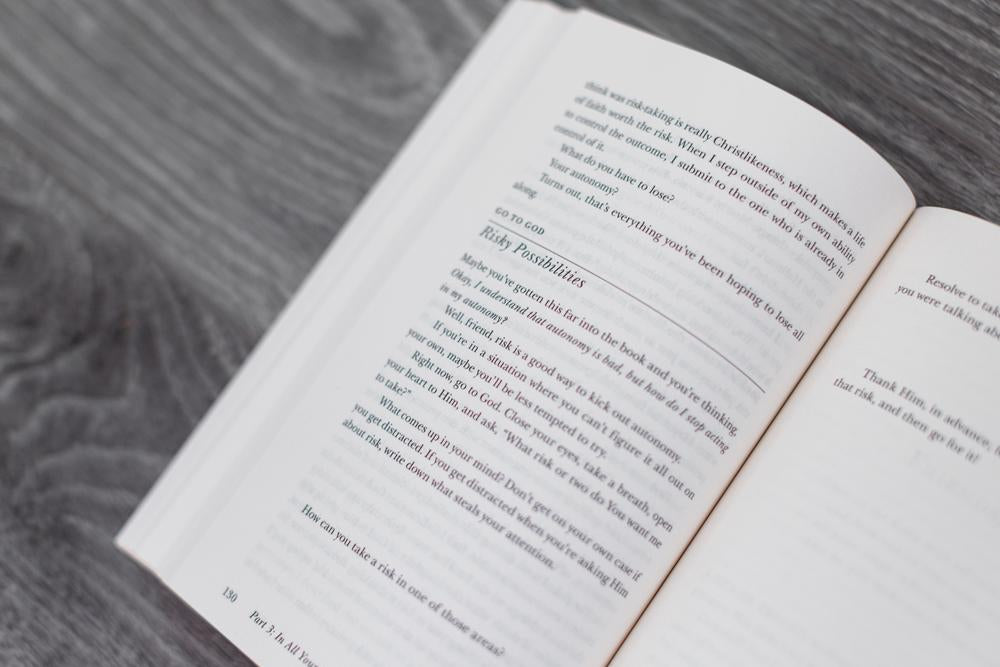 think was risk-taking is really Christlikeness, which makes a life
of faith worth the risk. When I step outside of my own ability
to control the outcome, I submit to the one who is already in
control of it.
What do you have to lose?
Your autonomy?
Turns out, that's everything you've been hoping to lose all
along.
GO TO GOD
Risky Possibilities
Maybe you've gotten this far into the book and you're thinking,
Okay, I understand that autonomy is bad, but how do I stop acting
in my autonomy?
Well, friend, risk is a good way to kick out autonomy.
If you're in a situation where you can't figure it all out on
your own, maybe you'll be less tempted to try.
Right now, go to God. Close your eyes, take a breath, open
your heart to Him, and ask, "What risk or two do You want me
to take?"
What comes up in your mind? Don't get on your own case if
you get distracted. If you get distracted when you're asking Him
about risk, write down what steals your attention.
How can you take a risk in one of those areas?
130
Part 3: In All Your
Resolve to
you were talking
Thank Him, in advance,
that risk, and then go for it!